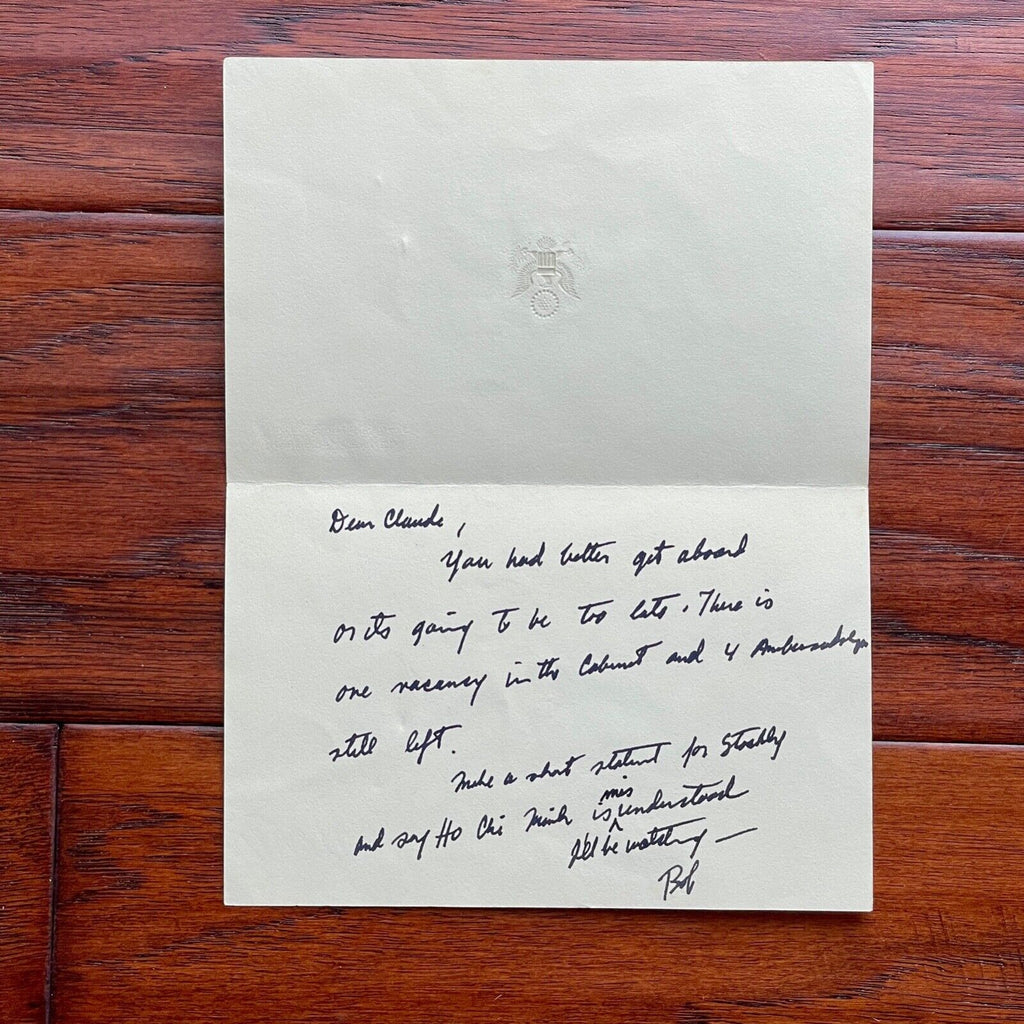 Dear Claude,
You had better get aboard
or its going to be too late. There is
one vacancy in the Cabinet and 4 Ambassadorships
still left.
Make a short statement for Stokely
and say Ho Chi Minh is ^mis understood
I'll be watching —
Bob